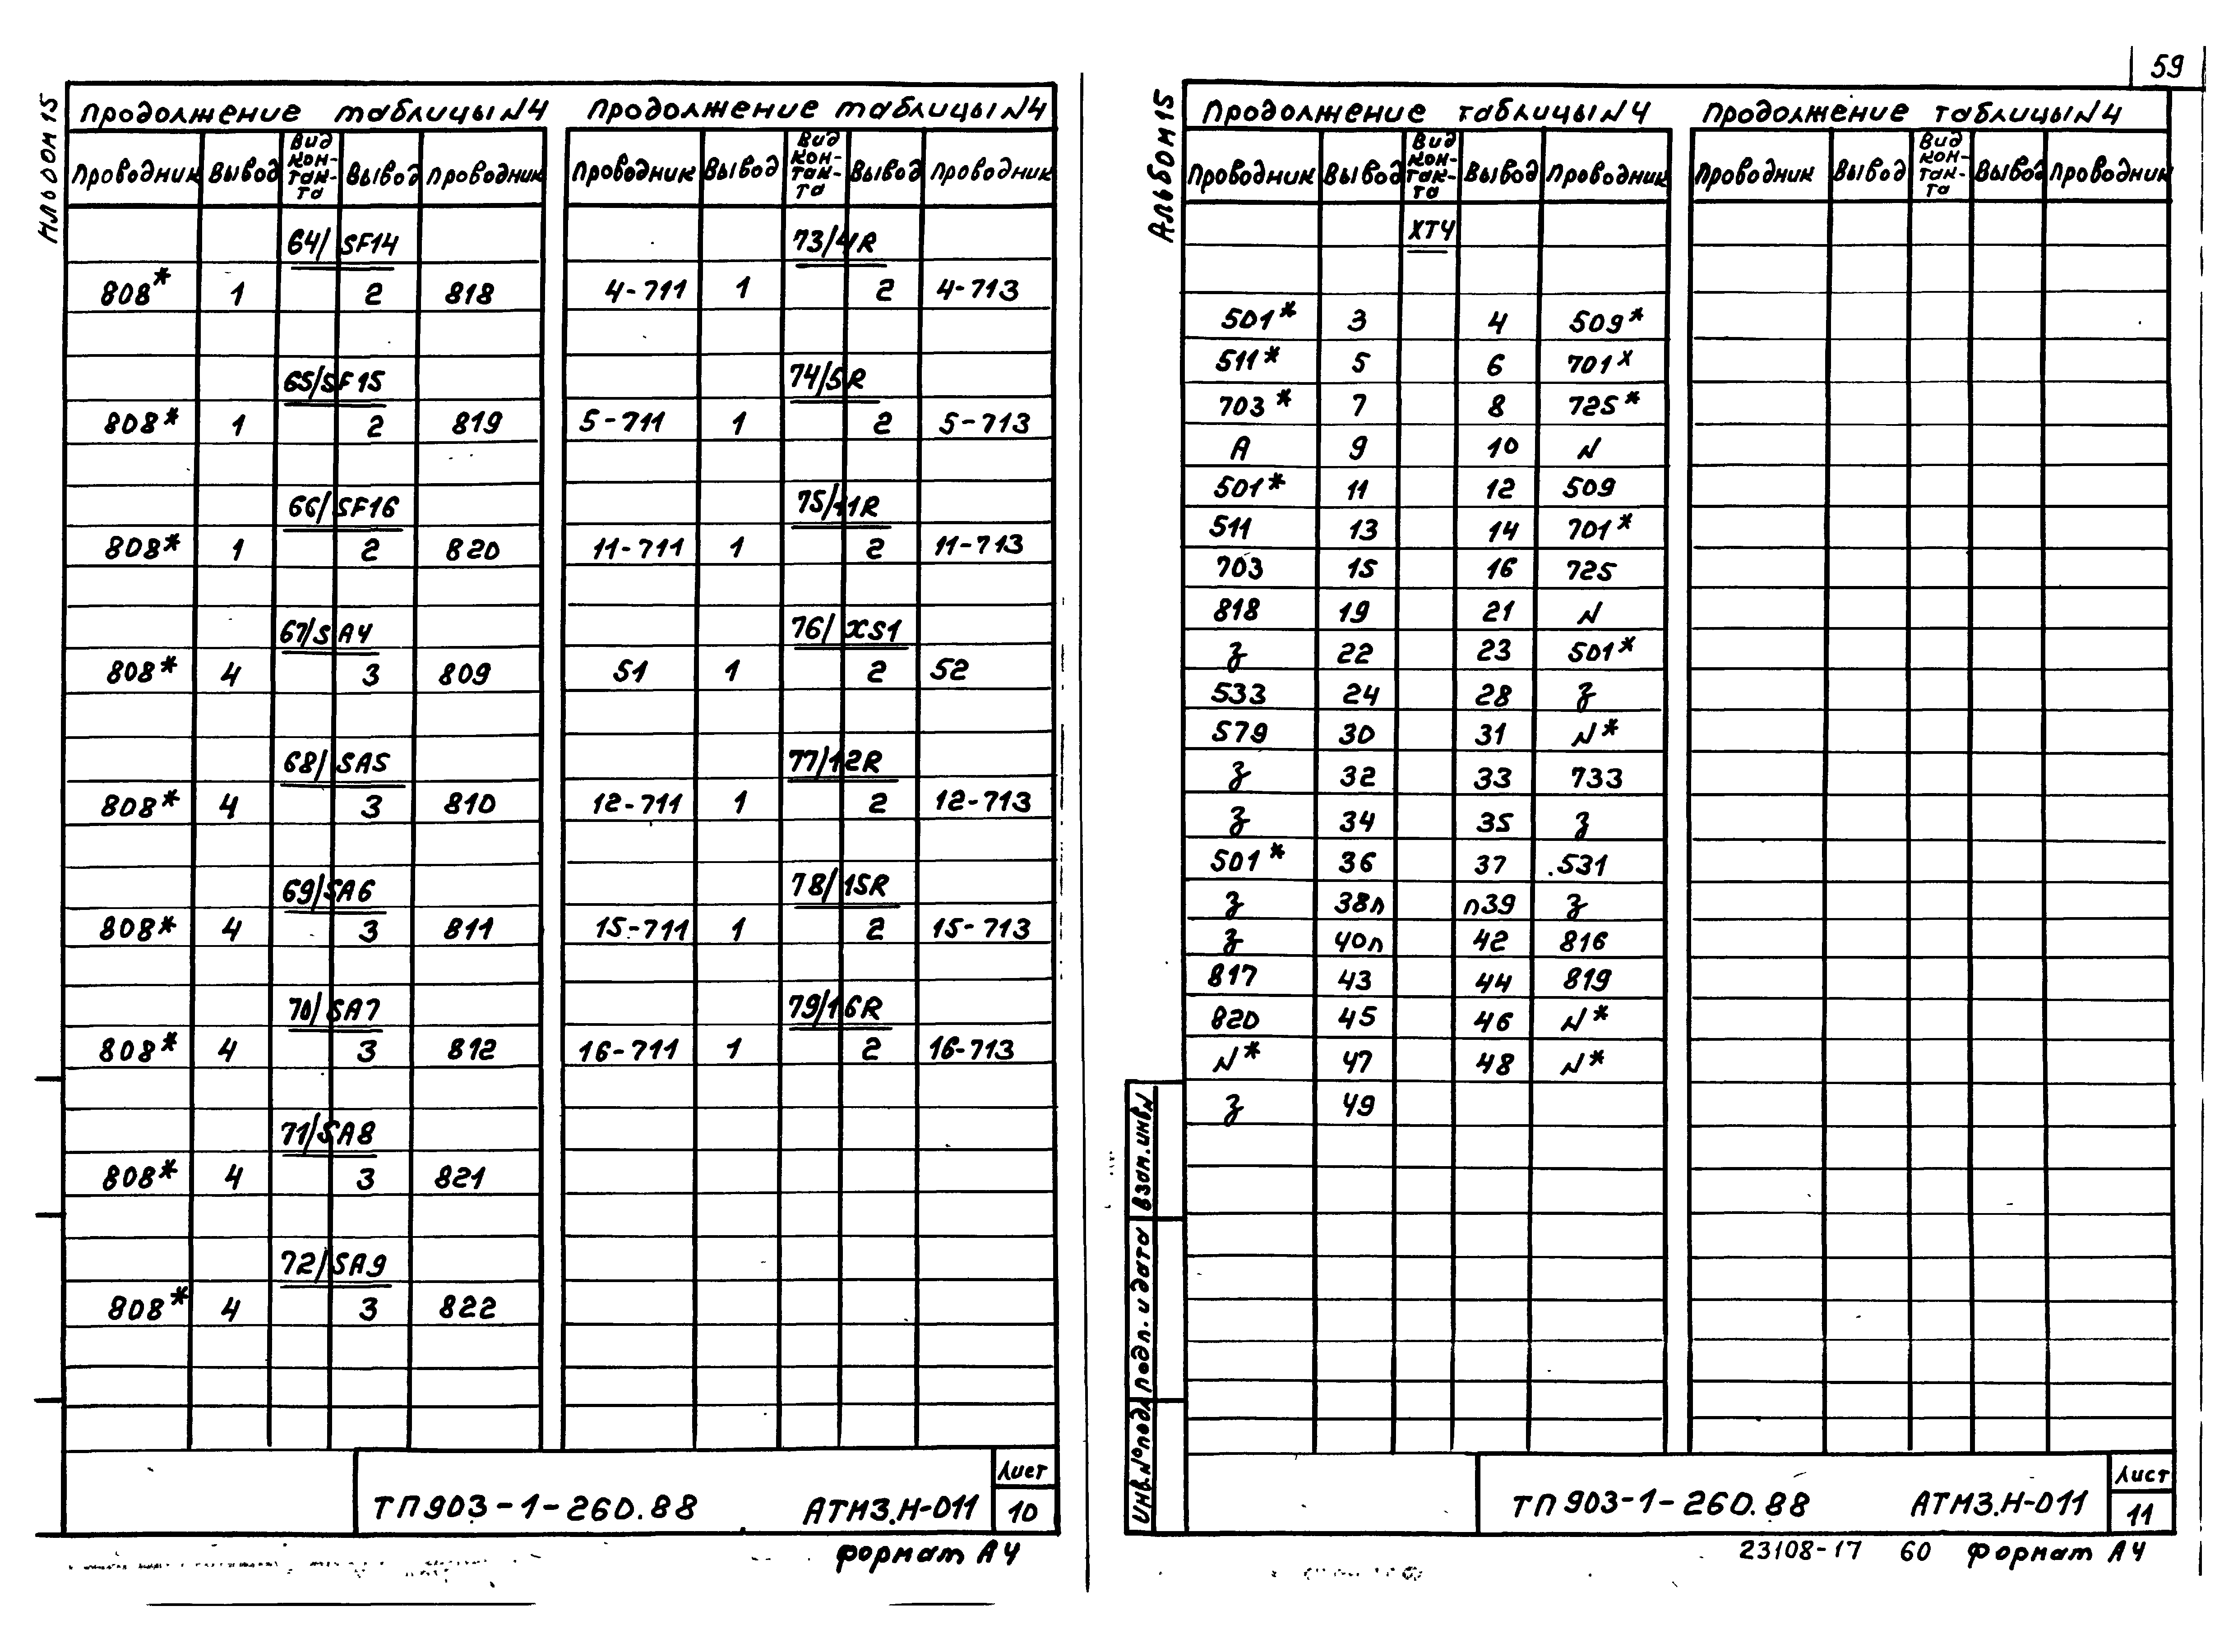 59
Альбом 15
Продолжение таблицы N4
Проводник Вывод Вид кон-так-та Вывод Проводник
64/SF14
808* 1 2 818
65/SF15
808* 1 2 819
66/SF16
808* 1 2 820
67/SA4
808* 4 3 809
68/SA5
808* 4 3 810
69/SA6
808* 4 3 811
70/SA7
808* 4 3 812
71/SA8
808* 4 3 821
72/SA9
808* 4 3 822
Продолжение таблицы N4
Проводник Вывод Вид кон-так-та Вывод Проводник
73/4R
4-711 1 2 4-713
74/5R
5-711 1 2 5-713
75/11R
11-711 1 2 11-713
76/XS1
51 1 2 52
77/12R
12-711 1 2 12-713
78/15R
15-711 1 2 15-713
79/16R
16-711 1 2 16-713
ТП903-1-260.88 АТМ3.Н-011
Лист
10
формат А4
Альбом 15
Продолжение таблицы N4
Проводник Вывод Вид кон-так-та Вывод Проводник
ХТ4
501* 3 4 509*
511* 5 6 701x
703* 7 8 725*
А 9 10 N
501* 11 12 509
511 13 14 701*
703 15 16 725
818 19 21 N
З 22 23 501*
533 24 28 З
579 30 31 N*
З 32 33 733
З 34 35 З
501* 36 37 531
З 38п п39 З
З 40п 42 816
817 43 44 819
820 45 46 N*
N* 47 48 N*
З 49
Продолжение таблицы N4
Проводник Вывод Вид кон-так-та Вывод Проводник
Взам.инвN
Подп. и дата
Инв.N°подл
ТП903-1-260.88 АТМ3.Н-011
Лист
11
23108-17 60 формат А4